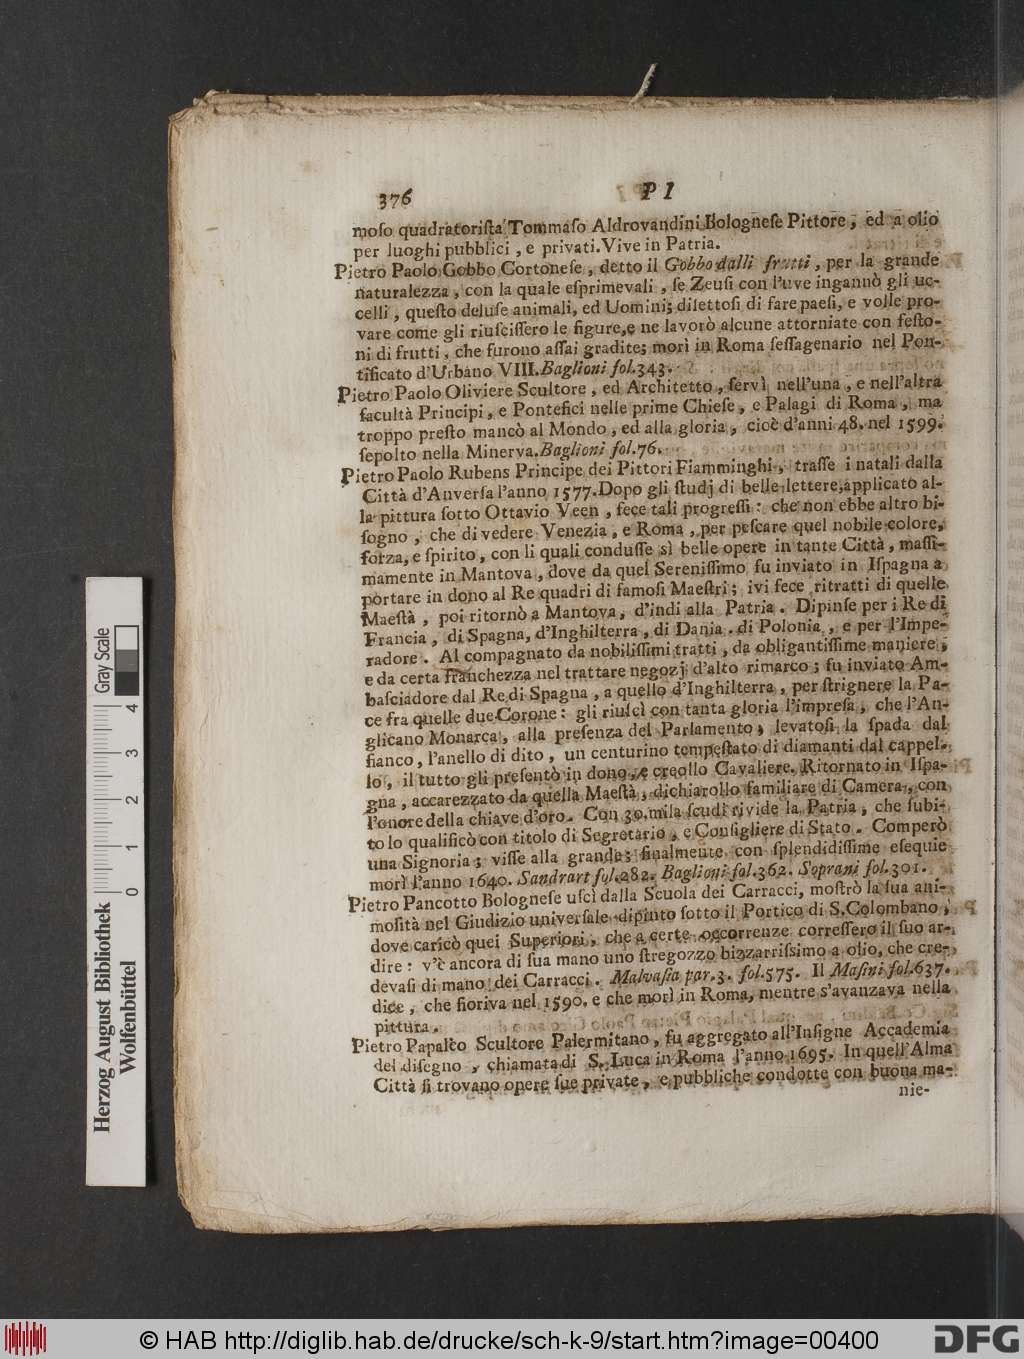 376 P I
moſo quadratoriſta Tommaſo Aldrovandini Bologneſe Pittore, ed a olio
per luoghi pubblici, e privati. Vive in Patria.
Pietro Paolo Gobbo Cortoneſe, detto il Gobbo dalli frutti, per la grande
naturalezza, con la quale eſprimevali, ſe Zeuſi con l'uve ingannò gli uc-
celli, queſto deluſe animali, ed Uomini; dilettoſi di fare paeſi, e volle pro-
vare come gli riuſciſſero le figure, e ne lavorò alcune attorniate con feſto-
ni di frutti, che furono aſſai gradite; morì in Roma ſeſſagenario nel Pon-
tificato d'Urbano VIII. Baglioni fol. 343.
Pietro Paolo Oliviere Scultore, ed Architetto, ſervì nell'una, e nell'altra
facultà Principi, e Pontefici nelle prime Chieſe, e Palagi di Roma, ma
troppo preſto mancò al Mondo, ed alla gloria, cioè d'anni 48. nel 1599.
ſepolto nella Minerva. Baglioni fol. 76.
Pietro Paolo Rubens Principe dei Pittori Fiamminghi, traſſe i natali dalla
Città d'Anverſa l'anno 1577. Dopo gli ſtudj di belle lettere, applicato al-
la pittura ſotto Ottavio Veen, fece tali progreſſi: che non ebbe altro bi-
ſogno, che di vedere Venezia, e Roma, per peſcare quel nobile colore,
forza, e ſpirito, con li quali conduſſe sì belle opere in tante Città, maſſi-
mamente in Mantova, dove da quel Sereniſſimo fu inviato in Iſpagna a
portare in dono al Re quadri di famoſi Maeſtri; ivi fece ritratti di quelle
Maeſtà, poi ritornò a Mantova, d'indi alla Patria. Dipinſe per i Re di
Francia, di Spagna, d'Inghilterra, di Dania, di Polonia, e per l'Impe-
radore. Al compagnato da nobiliſſimi tratti, da obligantiſſime maniere,
e da certa franchezza nel trattare negozj d'alto rimarco; fu inviato Am-
baſciadore dal Re di Spagna, a quello d'Inghilterra, per ſtrignere la Pa-
ce fra quelle due Corone: gli riuſcì con tanta gloria l'impreſa, che l'An-
glicano Monarca, alla preſenza del Parlamento, levatoſi la ſpada dal
fianco, l'anello di dito, un centurino tempeſtato di diamanti dal cappel-
lo, il tutto gli preſentò in dono, e creollo Cavaliere. Ritornato in Iſpa-
gna, accarezzato da quella Maeſtà, dichiarollo familiare di Camera, con
l'onore della chiave d'oro. Con 30. mila ſcudi rivide la Patria, che ſubi-
to lo qualificò con titolo di Segretario, e Conſigliere di Stato. Comperò
una Signoria; viſſe alla grande; finalmente con ſplendidiſſime eſequie
morì l'anno 1640. Sandrart fol. 282. Baglioni fol. 362. Soprani fol. 301.
Pietro Pancotto Bologneſe uſcì dalla Scuola dei Carracci, moſtrò la ſua ani-
moſità nel Giudizio univerſale dipinto ſotto il Portico di S. Colombano,
dove caricò quei Superiori, che a certe occorrenze correſſero il ſuo ar-
dire: v'è ancora di ſua mano uno ſtregozzo bizzarriſſimo a olio, che cre-
devaſi di mano dei Carracci. Malvaſia par. 3. fol. 575. Il Maſini fol. 637.
dice, che fioriva nel 1590. e che morì in Roma, mentre s'avanzava nella
pittura.
Pietro Papaleo Scultore Palermitano, fu aggregato all'Inſigne Accademia
del diſegno, chiamata di S. Luca in Roma l'anno 1695. In quell'Alma
Città ſi trovano opere ſue private, e pubbliche condotte con buona ma-
nie-
Gray Scale
0 1 2 3 4
Herzog August Bibliothek
Wolfenbüttel
© HAB http://diglib.hab.de/drucke/sch-k-9/start.htm?image=00400
DFG